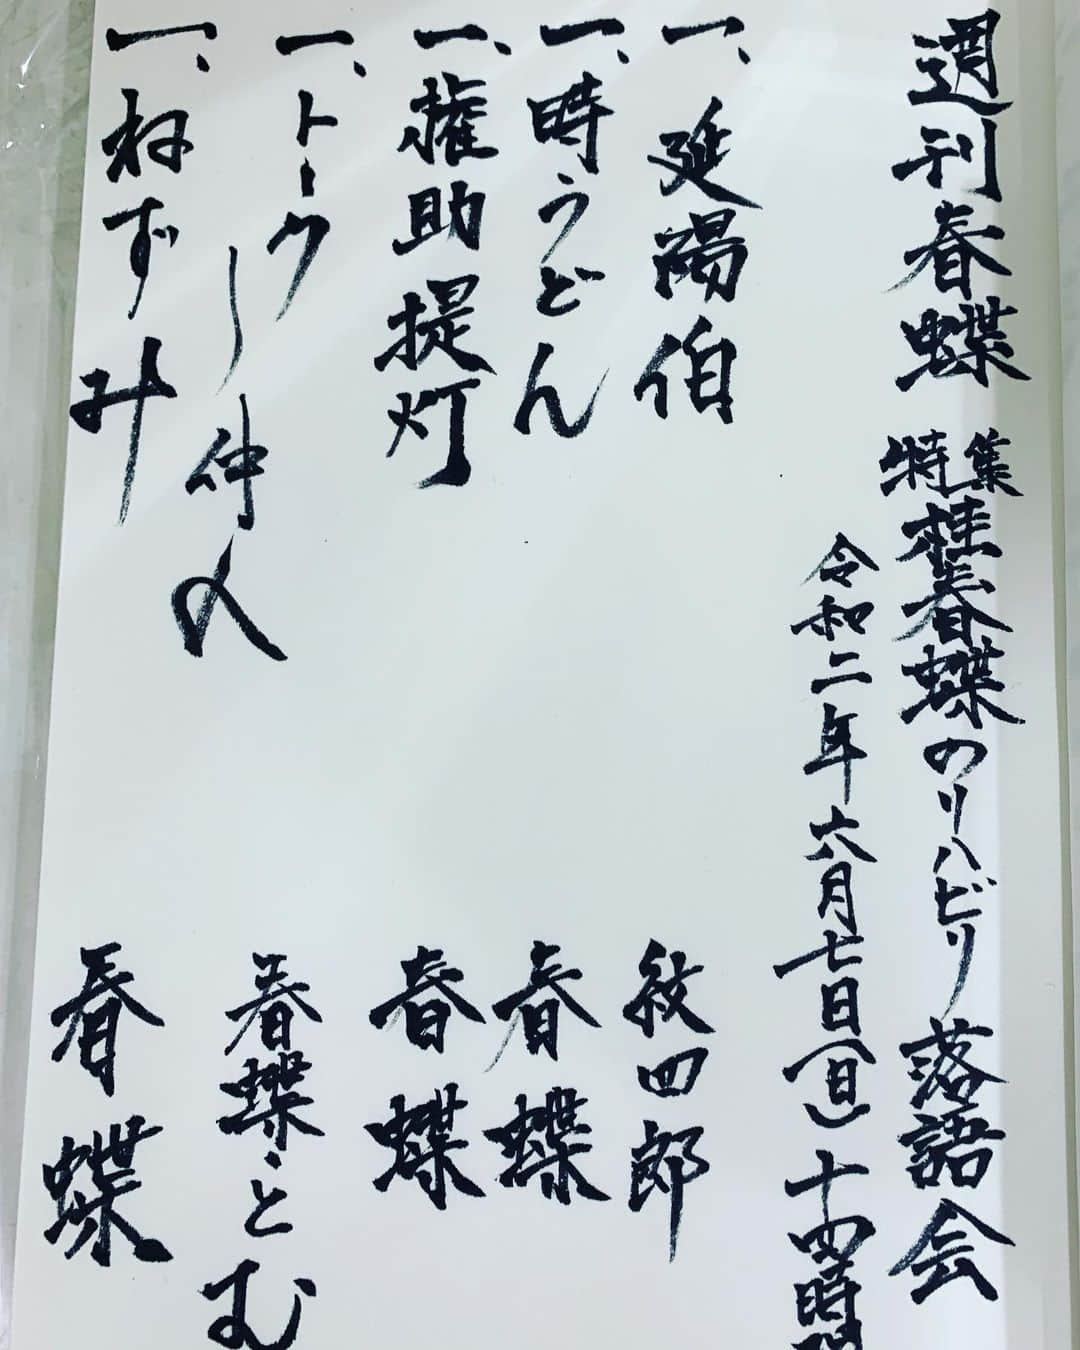 週刊春蝶 特集 桂春蝶のリハビリ落語会
令和二年六月七日(日)十四時開
一、延陽伯 紋四郎
一、時うどん 春蝶
一、権助提灯 春蝶
一、トーク 春蝶・とむ
〜仲入〜
一、ねずみ 春蝶